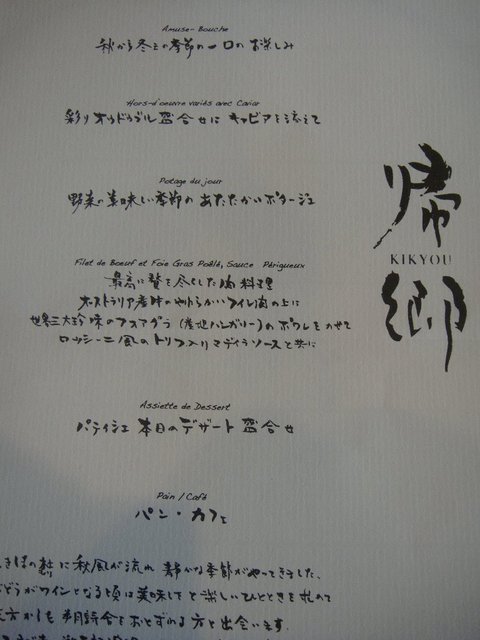 Amuse-Bouche
秋から冬への季節の一口のお楽しみ
Hors-d'oeuvre variés avec Caviar
彩りオウドヴル盛合せに キャビアを添えて
Potage du jour
野菜の美味しい季節の あたたかいポタージュ
Filet de Boeuf et Foie Gras Poêlé, Sauce Périgueux
最高に贅を尽くした肉料理
オーストラリア産味のやわらかいフィレ肉の上に
世界三大珍味のフォアグラ (産地ハンガリー)のポワレをのせて
ロッシーニ風のトリフ入りマデイラソースと共に
Assiette de Dessert
パティシエ 本日のデザート 盛合せ
Pain / Café
パン・カフェ
に秋風が流れ 静かな季節がやってきました。
どうがワインとなる頃は美味しさと楽しいひとときを求めて
朗読会をおとずれる方と出会います。
帰郷
KIKYOU